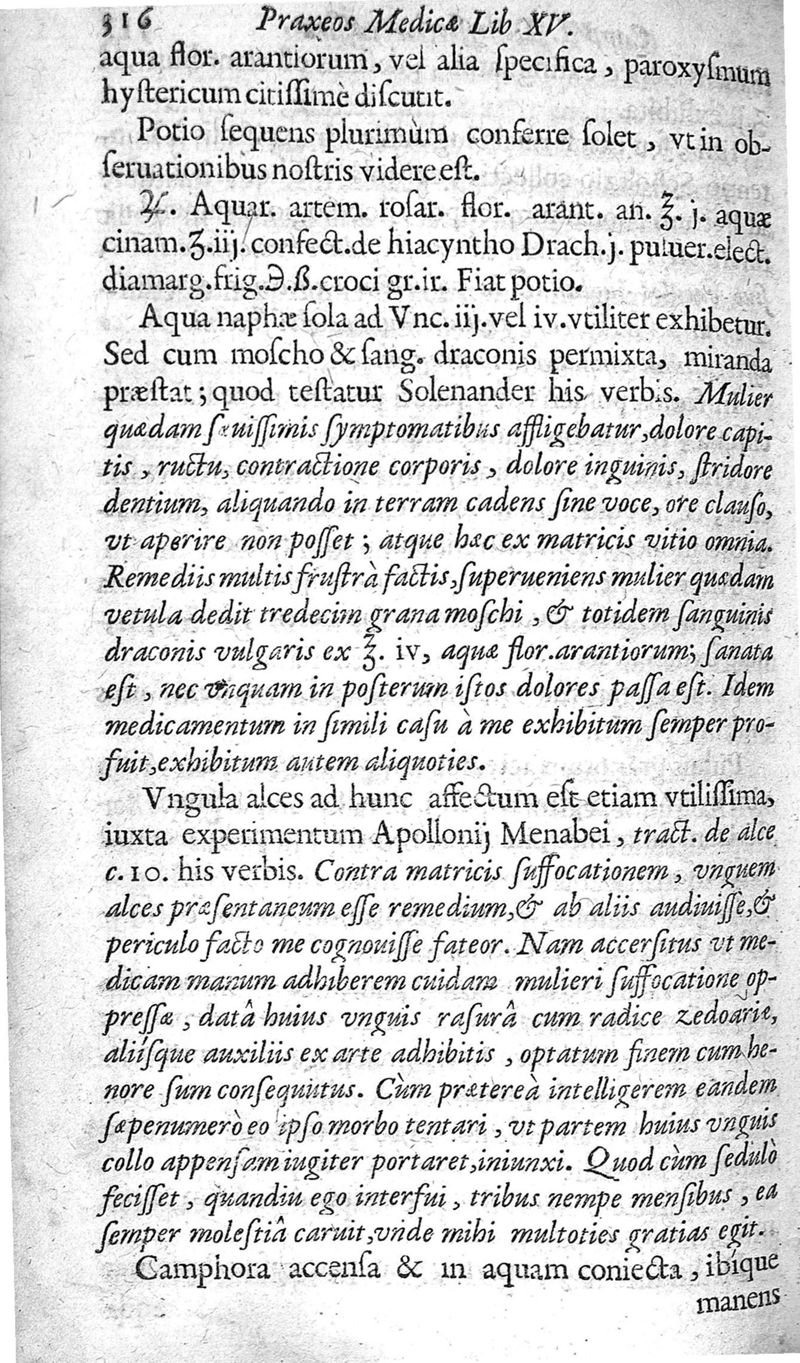 316 Praxeos Medicæ Lib XV.
aqua flor. arantiorum, vel alia ſpecifica, paroxyſmum
hyſtericum citiſſimè diſcutit.
Potio ſequens plurimùm conferre ſolet, vt in ob-
ſeruationibus noſtris videre eſt.
℞. Aquar. artem. roſar. flor. arant. an. ℥. j. aquæ
cinam. ʒ. iij. confect. de hiacyntho Drach. j. puluer. elect.
diamarg. frig. ℈. ß. croci gr. iv. Fiat potio.
Aqua naphæ ſola ad Vnc. iij. vel iv. vtiliter exhibetur.
Sed cum moſcho & ſang. draconis permixta, miranda
præſtat; quod teſtatur Solenander his verbis. Mulier
quædam ſæuiſſimis ſymptomatibus affligebatur, dolore capi-
tis, ructu, contractione corporis, dolore inguinis, ſtridore
dentium, aliquando in terram cadens ſine voce, ore clauſo,
vt aperire non poſſet; atque hæc ex matricis vitio omnia.
Remediis multis fruſtrà factis, ſuperueniens mulier quædam
vetula dedit tredecim grana moſchi, & totidem ſanguinis
draconis vulgaris ex ℥. iv, aquæ flor. arantiorum; ſanata
eſt, nec vnquam in poſterum iſtos dolores paſſa eſt. Idem
medicamentum in ſimili caſu à me exhibitum ſemper pro-
fuit, exhibitum autem aliquoties.
Vngula alces ad hunc affectum eſt etiam vtiliſſima,
iuxta experimentum Apollonij Menabei, tract. de alce
c. 10. his verbis. Contra matricis ſuffocationem, vnguem
alces præſentaneum eſſe remedium, & ab aliis audiuiſſe, &
periculo facto me cognouiſſe fateor. Nam accerſitus vt me-
dicam manum adhiberem cuidam mulieri ſuffocatione op-
preſſæ, datâ huius vnguis raſurâ cum radice zedoariæ,
aliíſque auxiliis ex arte adhibitis, optatum finem cum ho-
nore ſum conſequutus. Cùm prætereà intelligerem eandem
ſæpenumerò eo ipſo morbo tentari, vt partem huius vnguis
collo appenſam iugiter portaret, iniunxi. Quod cùm ſedulò
feciſſet, quandiu ego interfui, tribus nempe menſibus, ea
ſemper moleſtiâ caruit, vnde mihi multoties gratias egit.
Camphora accenſa & in aquam coniecta, ibique
manens